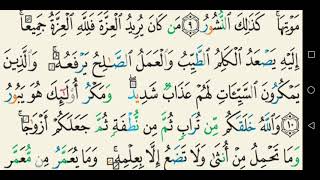 مَوْتِهَا ۚ كَذَٰلِكَ ٱلنُّشُورُ ۝٩ مَن كَانَ يُرِيدُ ٱلْعِزَّةَ فَلِلَّهِ ٱلْعِزَّةُ جَمِيعًا ۚ
إِلَيْهِ يَصْعَدُ ٱلْكَلِمُ ٱلطَّيِّبُ وَٱلْعَمَلُ ٱلصَّـٰلِحُ يَرْفَعُهُۥ ۚ وَٱلَّذِينَ
يَمْكُرُونَ ٱلسَّيِّـَٔاتِ لَهُمْ عَذَابٌ شَدِيدٌ ۖ وَمَكْرُ أُو۟لَـٰٓئِكَ هُوَ يَبُورُ
۝١٠ وَٱللَّهُ خَلَقَكُم مِّن تُرَابٍ ثُمَّ مِن نُّطْفَةٍ ثُمَّ جَعَلَكُمْ أَزْوَٰجًا ۚ
وَمَا تَحْمِلُ مِنْ أُنثَىٰ وَلَا تَضَعُ إِلَّا بِعِلْمِهِۦ ۚ وَمَا يُعَمَّرُ مِن مُّعَمَّرٍ